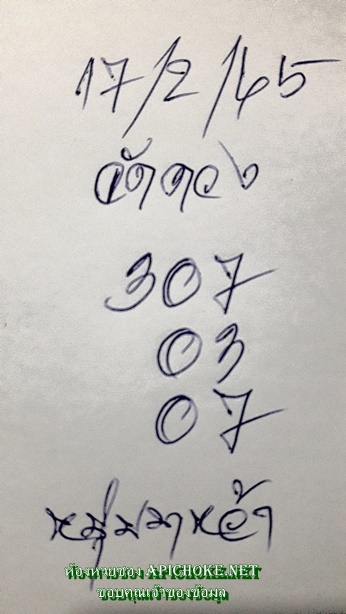 17/2/65
วัดดวง
307
03
07
หนุ่มมาหล้า
ห้องหวยซอง APICHOKE.NET
ขอบคุณเจ้าของข้อมูล